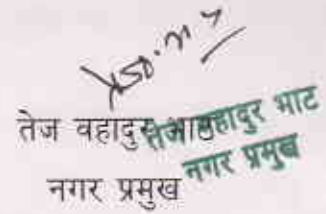 तेज वहादुर भाट
नगर प्रमुख
तेज वहादुर भाट
नगर प्रमुख